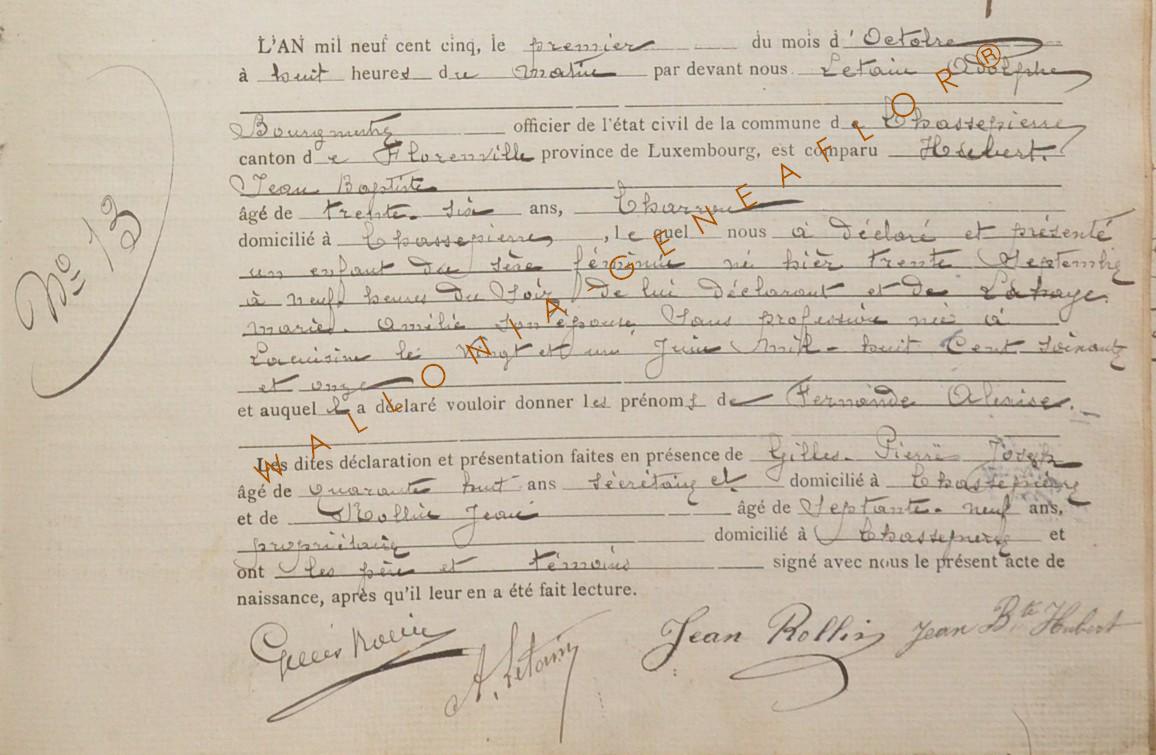 L'AN mil neuf cent cinq, le premier du mois d'Octobre
à huit heures du matin par devant nous Letain Adolphe
Bourgmestre officier de l'état civil de la commune de Chassepierre
canton de Florenville province de Luxembourg, est comparu Hubert.
Jean Baptiste
âgé de trente. six ans, Charron
domicilié à Chassepierre, le quel nous a déclaré et présenté
un enfant du sexe féminin né hier trente Septembre
à neuf heures du Soir, de lui déclarant et de Lahaye.
Marie. Amélie son épouse, Sans profession née à
Lacuisine le vingt et un Juin Mil. huit Cent soixante
et onze
et auquel il a déclaré vouloir donner les prénoms de Fernande
Les dites déclaration et présentation faites en présence de Gilles. Pierre Joseph
âgé de quarante huit ans secrétaire et domicilié à Chassepierre
et de Rollin Jean âgé de Septante. neuf ans,
propriétaire domicilié à Chassepierre et
ont les père et témoins signé avec nous le présent acte de
naissance, après qu'il leur en a été fait lecture.
A. Letain Jean Rollin Jean Bte Hubert
No 13
WALLONIA-GENEAFLOR®